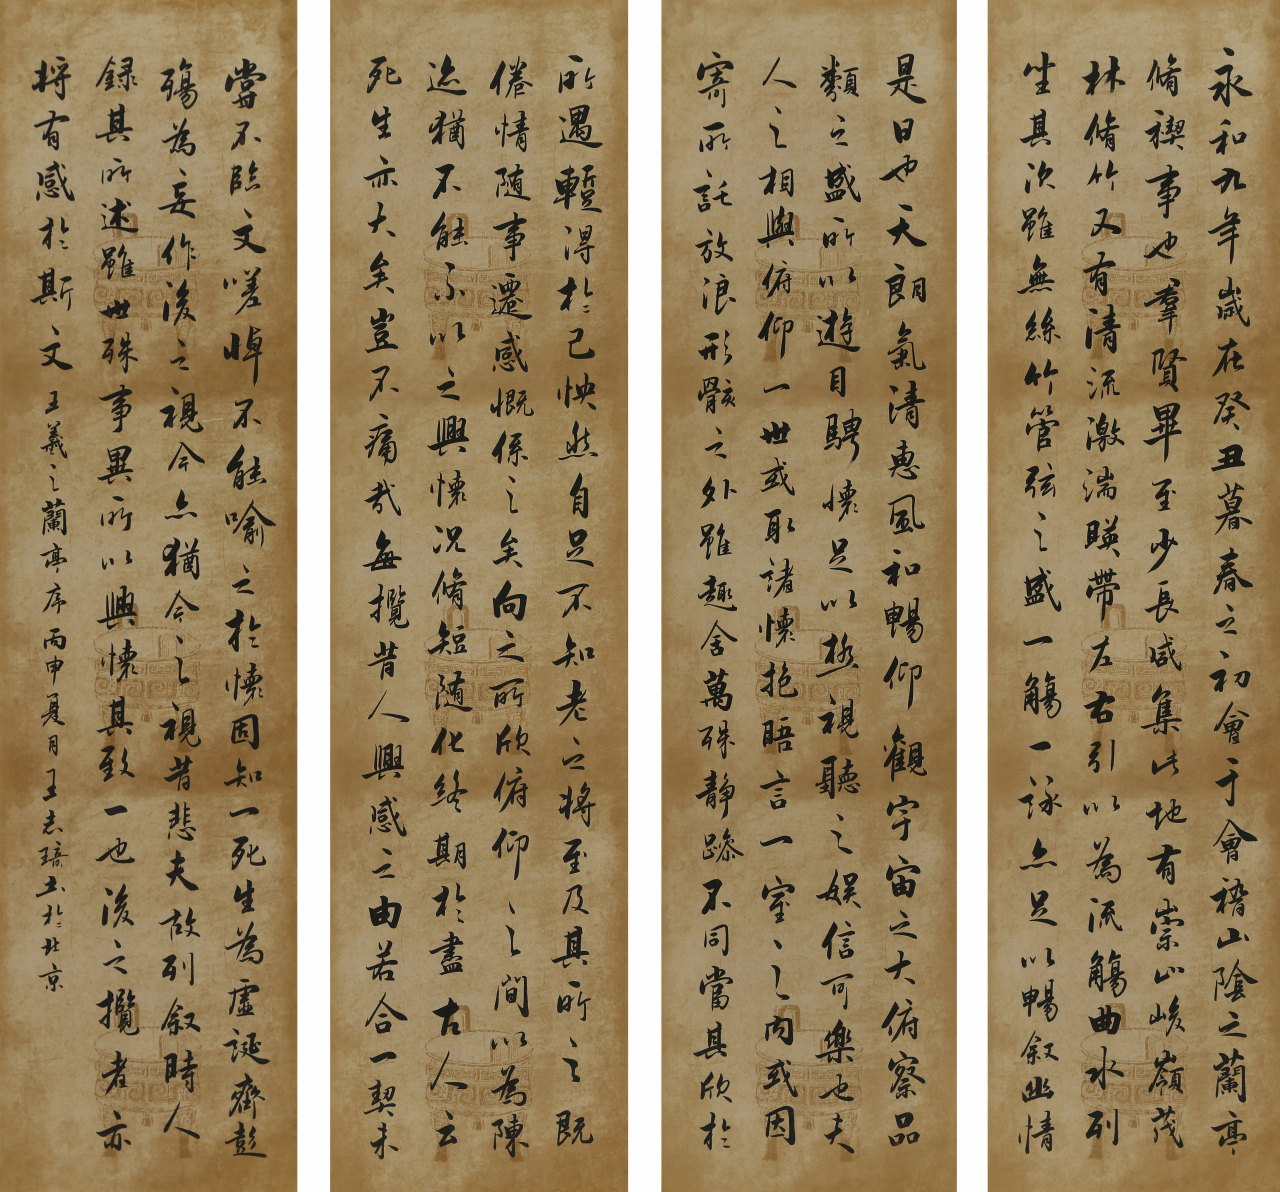 永和九年歲在癸丑暮春之初會于會稽山陰之蘭亭
脩禊事也羣賢畢至少長咸集此地有崇山峻嶺茂
林脩竹又有清流激湍暎帶左右引以為流觴曲水列
坐其次雖無絲竹管弦之盛一觴一詠亦足以暢叙幽情
是日也天朗氣清惠風和暢仰觀宇宙之大俯察品
類之盛所以遊目騁懷足以極視聽之娛信可樂也夫
人之相與俯仰一世或取諸懷抱晤言一室之内或因
寄所託放浪形骸之外雖趣舍萬殊静躁不同當其欣於
所遇暫得於己怏然自足不知老之將至及其所之既
倦情随事遷感慨係之矣向之所欣俯仰之間以為陳
迹猶不能不以之興懷況脩短随化終期於盡古人云
死生亦大矣豈不痛哉每攬昔人興感之由若合一契未
嘗不臨文嗟悼不能喻之於懷固知一死生為虛誕齊彭
殤為妄作後之視今亦猶今之視昔悲夫故列叙時人
録其所述雖世殊事異所以興懷其致一也後之攬者亦
將有感於斯文 王羲之蘭亭序丙申夏月王志琦书於北京